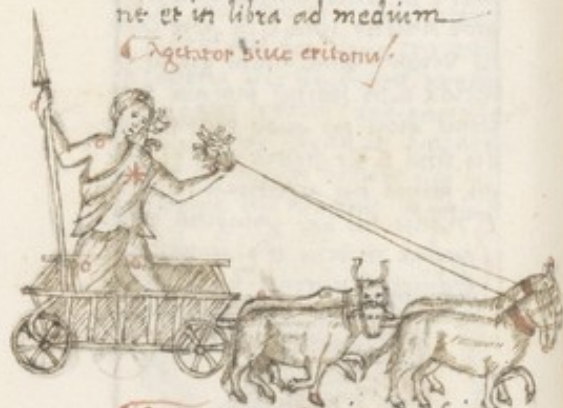 ne et in libra ad medium
Agitator siue eritonius